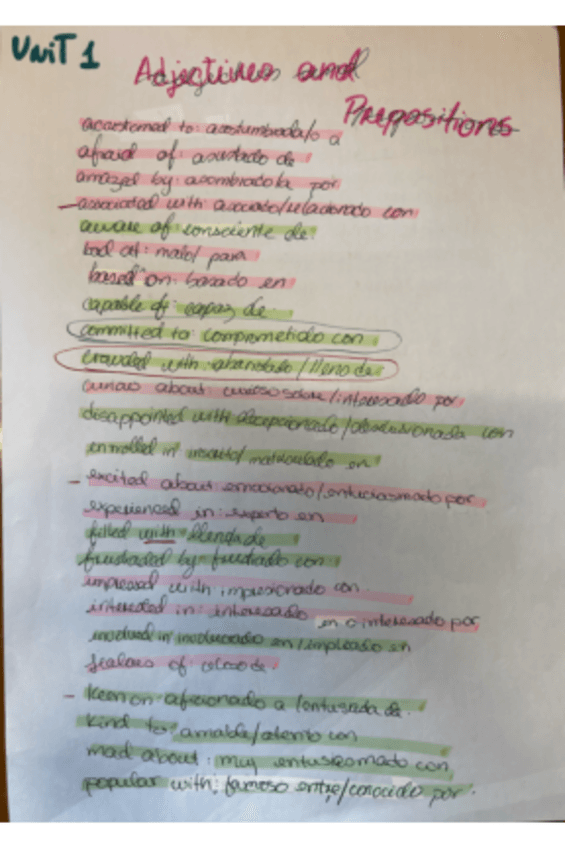 UNIT 1
Adjectives and
Prepositions
acustomed to: acostumbrada/o a
afraid of: asustado de
amazed by: asombrado/a por
associated with: asociado/relacionado con
aware of: consciente de:
bad at: malo/ para
based on: basado en
capable of: capaz de.
committed to: comprometido con
crowded with: abarrotado/lleno de
curious about: curioso sobre/interesado por
disappointed with decepcionado/desilusionada con
enrolled in: inscrito/matriculado en
excited about: emocionado/entusiasmado por
experienced in: experto en
filled with: llena de
frustrated by: frustrado con
impressed with impresionado con.
interested in: interesado en o interesado por
involved in involucrado en/implicado en
jealous of: celoso de.
Keen on: aficionado a /entusiada de.
Kind to: amable/atento con
mad about: muy entusiasmado con
popular with: famoso entre/conocido por.